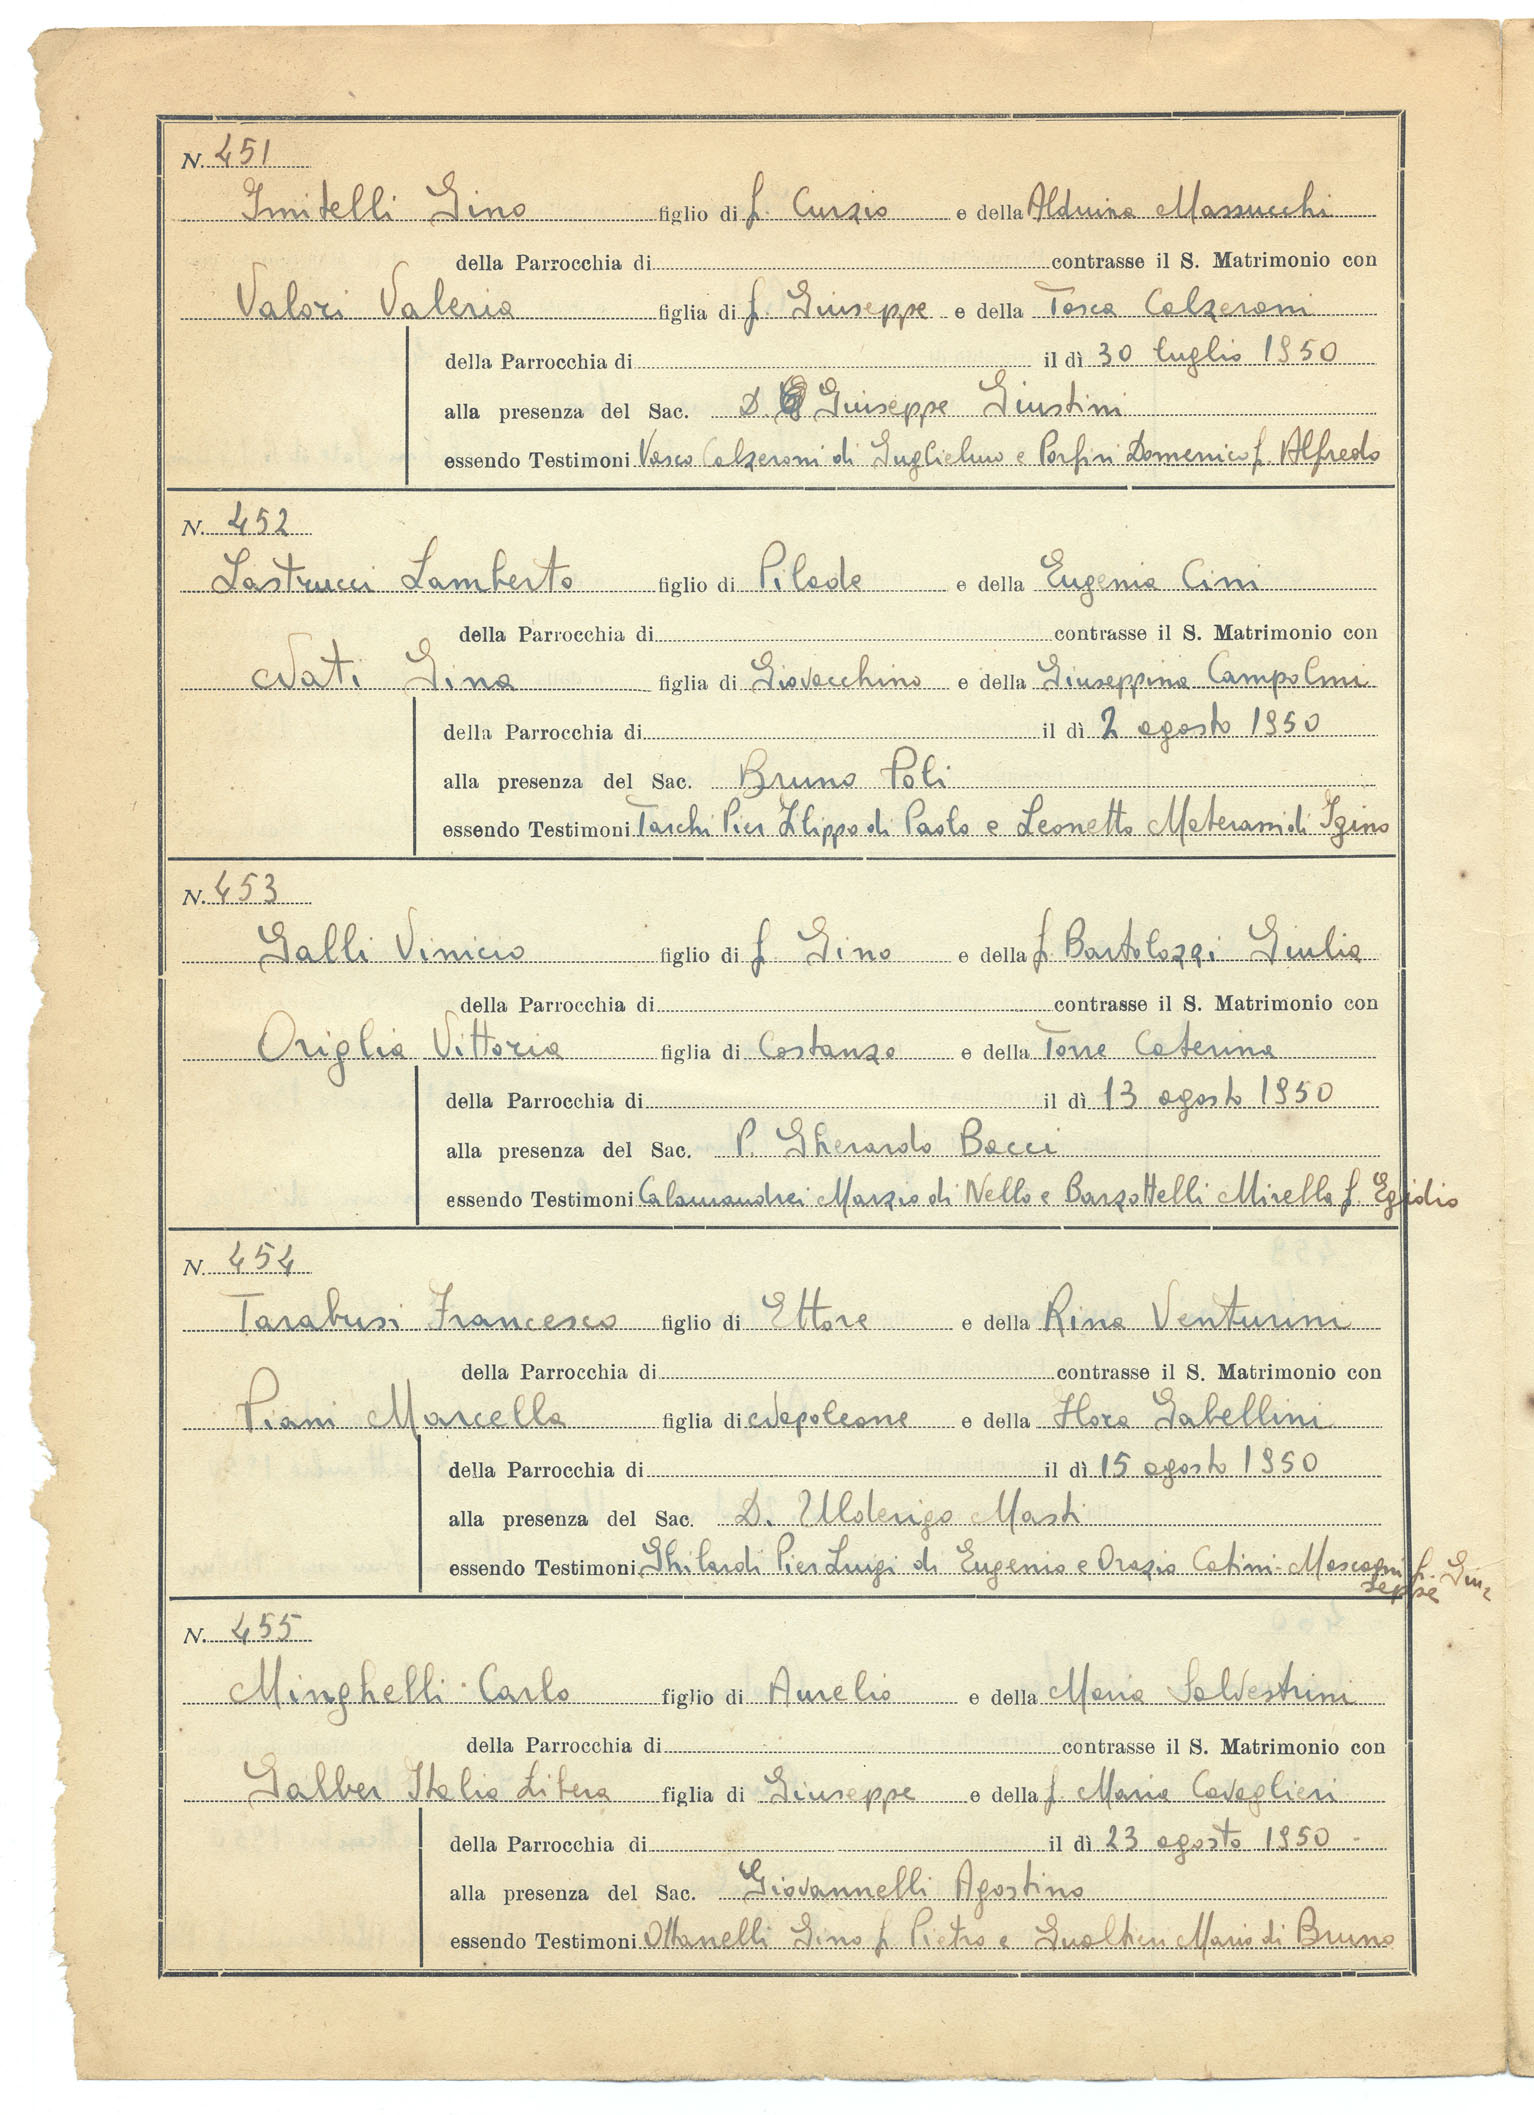 N. 451
Imitelli Gino figlio di f. Curzio e della Alduina Massucchi
della Parrocchia di contrasse il S. Matrimonio con
Valori Valeria figlia di f. Giuseppe e della Tosca Calzeroni
della Parrocchia di il dì 30 luglio 1950
alla presenza del Sac. D. Giuseppe Giustini
essendo Testimoni Vasco Calzeroni di Guglielmo e Porfiri Domenico f. Alfredo
N. 452
Lastrucci Lamberto figlio di Pilade e della Eugenia Cini
della Parrocchia di contrasse il S. Matrimonio con
Nati Gina figlia di Giovacchino e della Giuseppina Campolmi
della Parrocchia di il dì 2 agosto 1950
alla presenza del Sac. Bruno Poli
essendo Testimoni Tarchi Pier Filippo di Paolo e Leonetto Materassi di Igino
N. 453
Galli Vinicio figlio di f. Gino e della f. Bartolozzi Giulia
della Parrocchia di contrasse il S. Matrimonio con
Origlia Vittoria figlia di Costanzo e della Torre Caterina
della Parrocchia di il dì 13 agosto 1950
alla presenza del Sac. P. Gherardo Bacci
essendo Testimoni Calamandrei Marzio di Nello e Barzottelli Mirella f. Egidio
N. 454
Tarabusi Francesco figlio di Ettore e della Rina Venturini
della Parrocchia di contrasse il S. Matrimonio con
Piani Marcella figlia di Napoleone e della Flora Gabellini
della Parrocchia di il dì 15 agosto 1950
alla presenza del Sac. D. Ulderigo Masti
essendo Testimoni Ghilardi Pier Luigi di Eugenio e Orazio Catini-Mascagni f. Giu=
seppe
N. 455
Minghelli Carlo figlio di Aurelio e della Maria Salvestrini
della Parrocchia di contrasse il S. Matrimonio con
Galber Italia Libera figlia di Giuseppe e della f. Maria Cavaglieri
della Parrocchia di il dì 23 agosto 1950 -
alla presenza del Sac. Giovannelli Agostino
essendo Testimoni Ottanelli Gino f. Pietro e Gualtieri Mario di Bruno